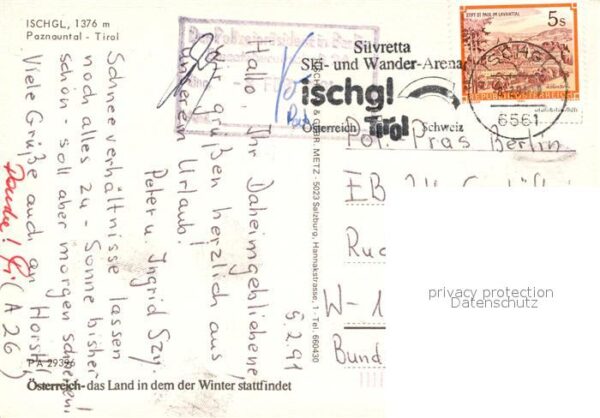 ISCHGL, 1376 m
Paznauntal - Tirol
Silvretta
Ski- und Wander-Arena
ischgl
Tirol
Österreich
Schweiz
STIFT ST. PAUL IM LAVANTTAL
5s
REPUBLIK ÖSTERREICH
ISCHGL
6561
5.2.91
Hallo, Ihr Daheimgebliebene,
wir grüßen herzlich aus
unserem Urlaub!
Peter u. Ingrid Szy.
Schneeverhältnisse lassen
noch alles zu - Sonne bisher
schön - soll aber morgen schneien!
Viele Grüße auch an Horst!
(A 26)
Danke!
METZ - 5023 Salzburg, Hannakstrasse, 1 - Tel. 660430
Pol. Präs Berlin
EB
Rud
W-1
Bund
privacy protection
Datenschutz
PA 29396
Österreich - das Land in dem der Winter stattfindet